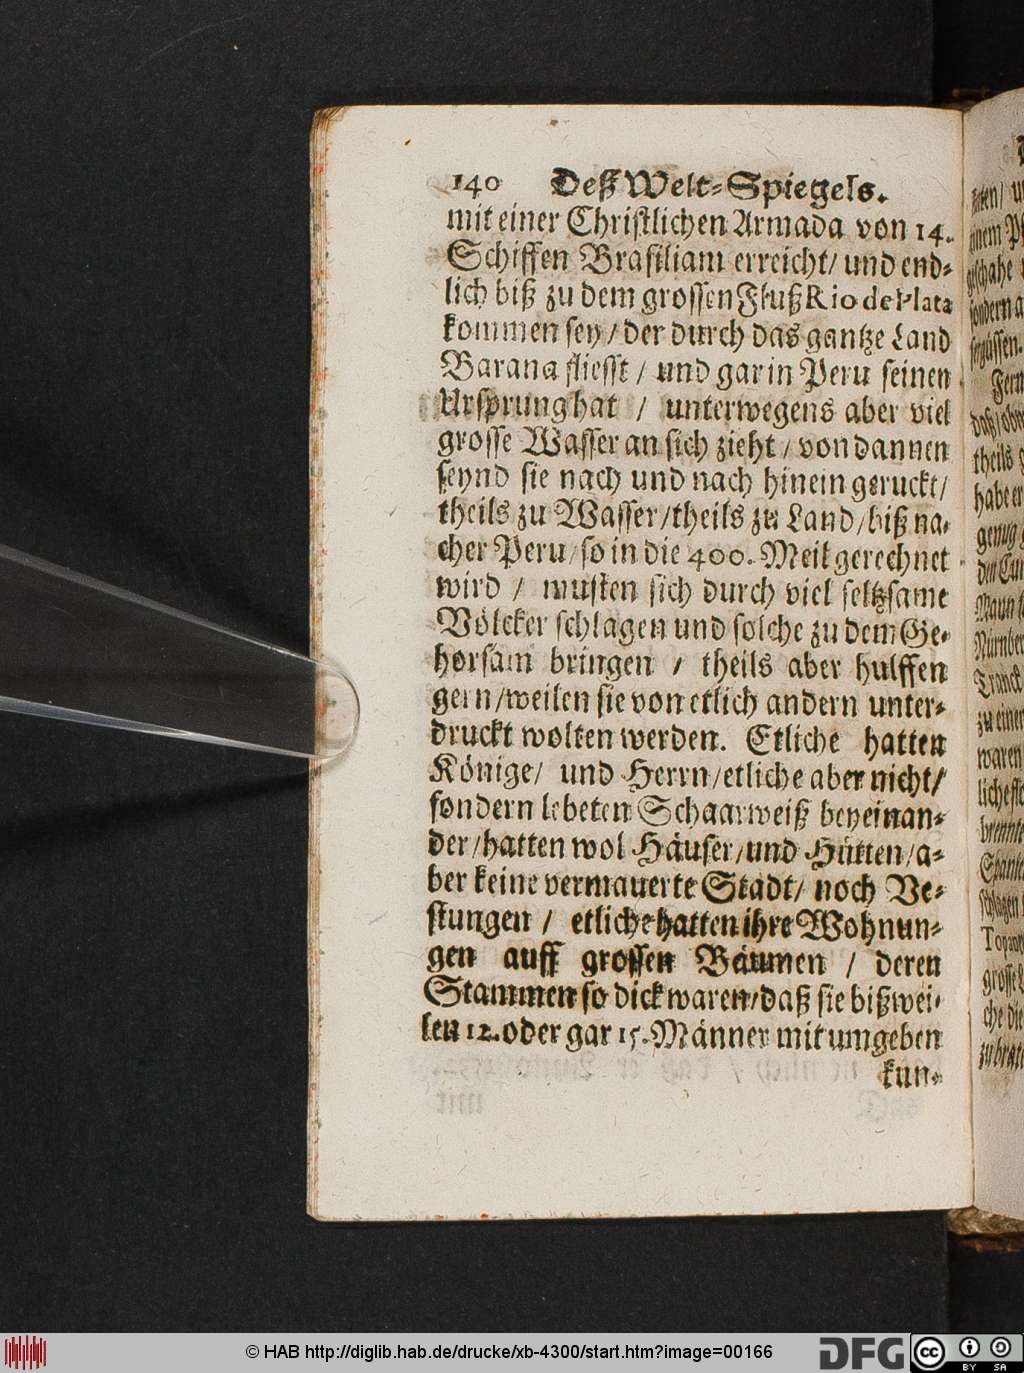 140 Deß Welt-Spiegels.
mit einer Christlichen Armada von 14.
Schiffen Brasiliam erreicht/ und end-
lich biß zu dem grossen Fluß Rio de Plata
kommen sey/ der durch das gantze Land
Barana fliesst/ und gar in Peru seinen
Ursprung hat / unterwegens aber viel
grosse Wasser an sich zieht/ von dannen
seynd sie nach und nach hinein geruckt/
theils zu Wasser/theils zu Land/biß na-
cher Peru/so in die 400. Meil gerechnet
wird / musten sich durch viel seltzsame
Völcker schlagen und solche zu dem Ge-
horsam bringen / theils aber hulffen
gern/weilen sie von etlich andern unter-
druckt wolten werden. Etliche hatten
Könige/ und Herrn/etliche aber nicht/
sondern lebeten Schaarweiß beyeinan-
der/hatten wol Häuser/und Hütten/a-
ber keine vermauerte Stadt/ noch Ve-
stungen / etliche hatten ihre Wohnun-
gen auff grossen Bäumen / deren
Stammen so dick waren/daß sie bißwei-
len 12. oder gar 15. Männer mit umgeben
kun-
© HAB http://diglib.hab.de/drucke/xb-4300/start.htm?image=00166
DFG
cc
BY SA